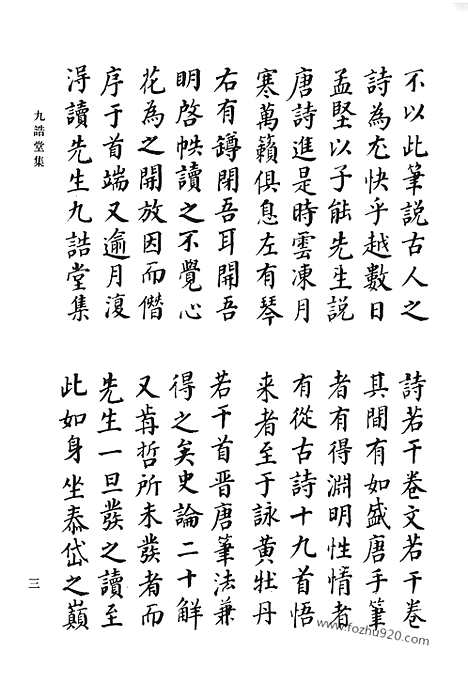 不以此筆説古人之
詩為尤快乎越數日
孟堅以子能先生説
唐詩進是時雲凍月
寒萬籟俱息左有琴
右有鐏閉吾耳開吾
明啓帙讀之不覺心
花為之開放因而僭
序于首端又逾月復
淂讀先生九誥堂集
詩若干卷文若干卷
其間有如盛唐手筆
者有得淵明性情者
有從古詩十九首悟
来者至于詠黄牡丹
若干首晋唐筆法兼
得之矣史論二十解
又歬哲所未發者而
先生一旦發之讀至
此如身坐泰岱之巔
九誥堂集
三
www.fozhu920.com